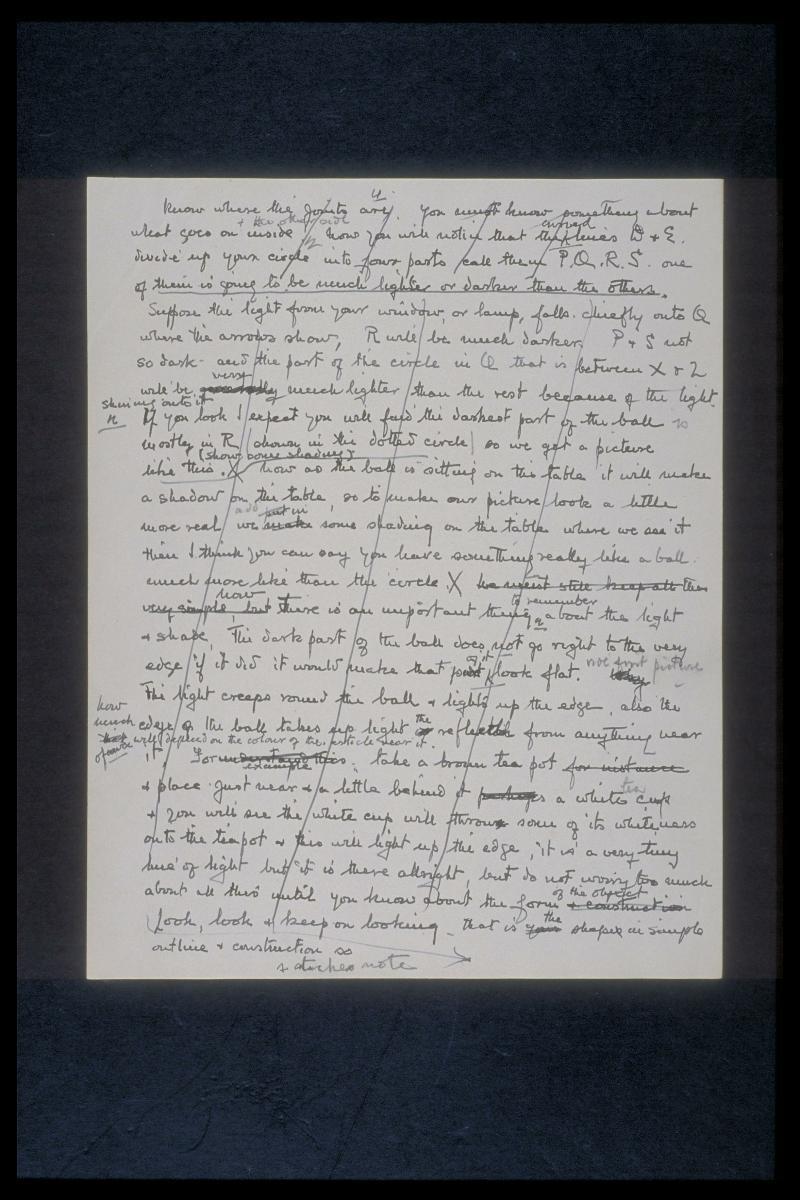 know where the joints are. You must know something about
+ the other side
what goes on inside now you will notice that the curved lines D + E.
divide up your circle into four parts call them P.Q.R.S. one
of them is going to be much lighter or darker than the others.
Suppose the light from your window, or lamp, falls chiefly onto Q
where the arrows show, R will be much darker, P + S not
so dark - and the part of the circle in Q that is between X + Z
very
will be much lighter than the rest because of the light
shining onto it
If you look I expect you will find the darkest part of the ball is
mostly in R (shown in the dotted circle) so we get a picture
(show some shading)
like this. X now as the ball is sitting on the table it will make
a shadow on the table, so to make our picture look a little
add put in
more real we make some shading on the table where we see it
then I think you can say you have something really like a ball.
much more like than the circle. X we must still keep all this
now to remember
very simple, but there is an important thing about the light
+ shade, The dark part of the ball does not go right to the very
of it
edge if it did it would make that part look flat. not first picture
The light creeps round the ball + lights up the edge, also the
how
much edge of the ball takes up light or the reflected from anything near
of course will depend on the colour of the article near it.
it For understand this. example take a brown tea pot for instance
+ place just near + a little behind it perhaps a white tea cup
+ you will see the white cup will throw some of its whiteness
onto the teapot + this will light up the edge, it is a very tiny
line of light but it is there allright, but do not worry too much
of the object
about all this until you know about the form + construction
Look, look + keep on looking - that is your the shapes in simple
outline + construction so
+ note